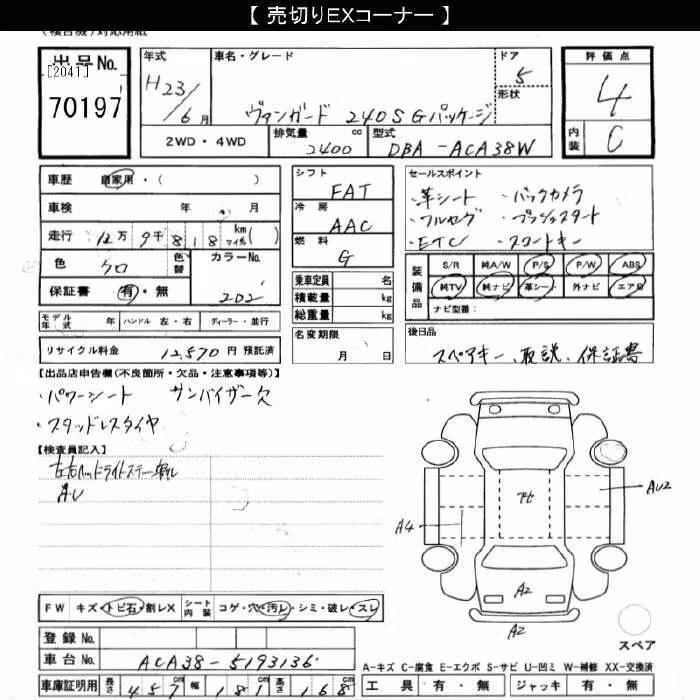 【 売切りEXコーナー 】
出品No.
[2041]
70197
年式
H23/6月
車名・グレード
ヴァンガード 240S Gパッケージ
ドア
5
形状
2WD・4WD
排気量 2400 cc
型式 DBA-ACA38W
評価点
4
内装 C
車歴 自家用・( )
車検 年 . 月
走行 12万9千818 km マイル ( )
色 クロ 色替
カラーNo. 202
保証書 有・無
モデル年式 年 ハンドル 左・右 ディーラー・並行
リサイクル料金 12,570 円 預託済
シフト FAT
冷房 AAC
燃料 G
乗車定員 名
積載量 kg
総重量 kg
名変期限
月 日
セールスポイント
・革シート ・バックカメラ
・フルセグ ・プッシュスタート
・ETC ・スマートキー
装備品
S/R 純A/W P/S P/W ABS
純TV 純ナビ 革シート 外ナビ エアB
ナビ型番:
後日品
スペアキー、取説、保証書
【出品店申告欄(不良箇所・欠品・注意事項等)】
・パワーシート サンバイザー欠
・スタッドレスタイヤ
【検査員記入】
AU
FW キズ・トビ石・割レX シート内装 コゲ・穴・汚レ・シミ・破レ・スレ
登録No.
車台No. ACA38-5193136
車庫証明用 長さ 457 cm 幅 181 cm 高さ 168 cm
AU2
A4
A2
A2
スペア
A-キズ C-腐食 E-エクボ S-サビ U-凹ミ W-補修 XX-交換済
工具 有・無 ジャッキ 有・無